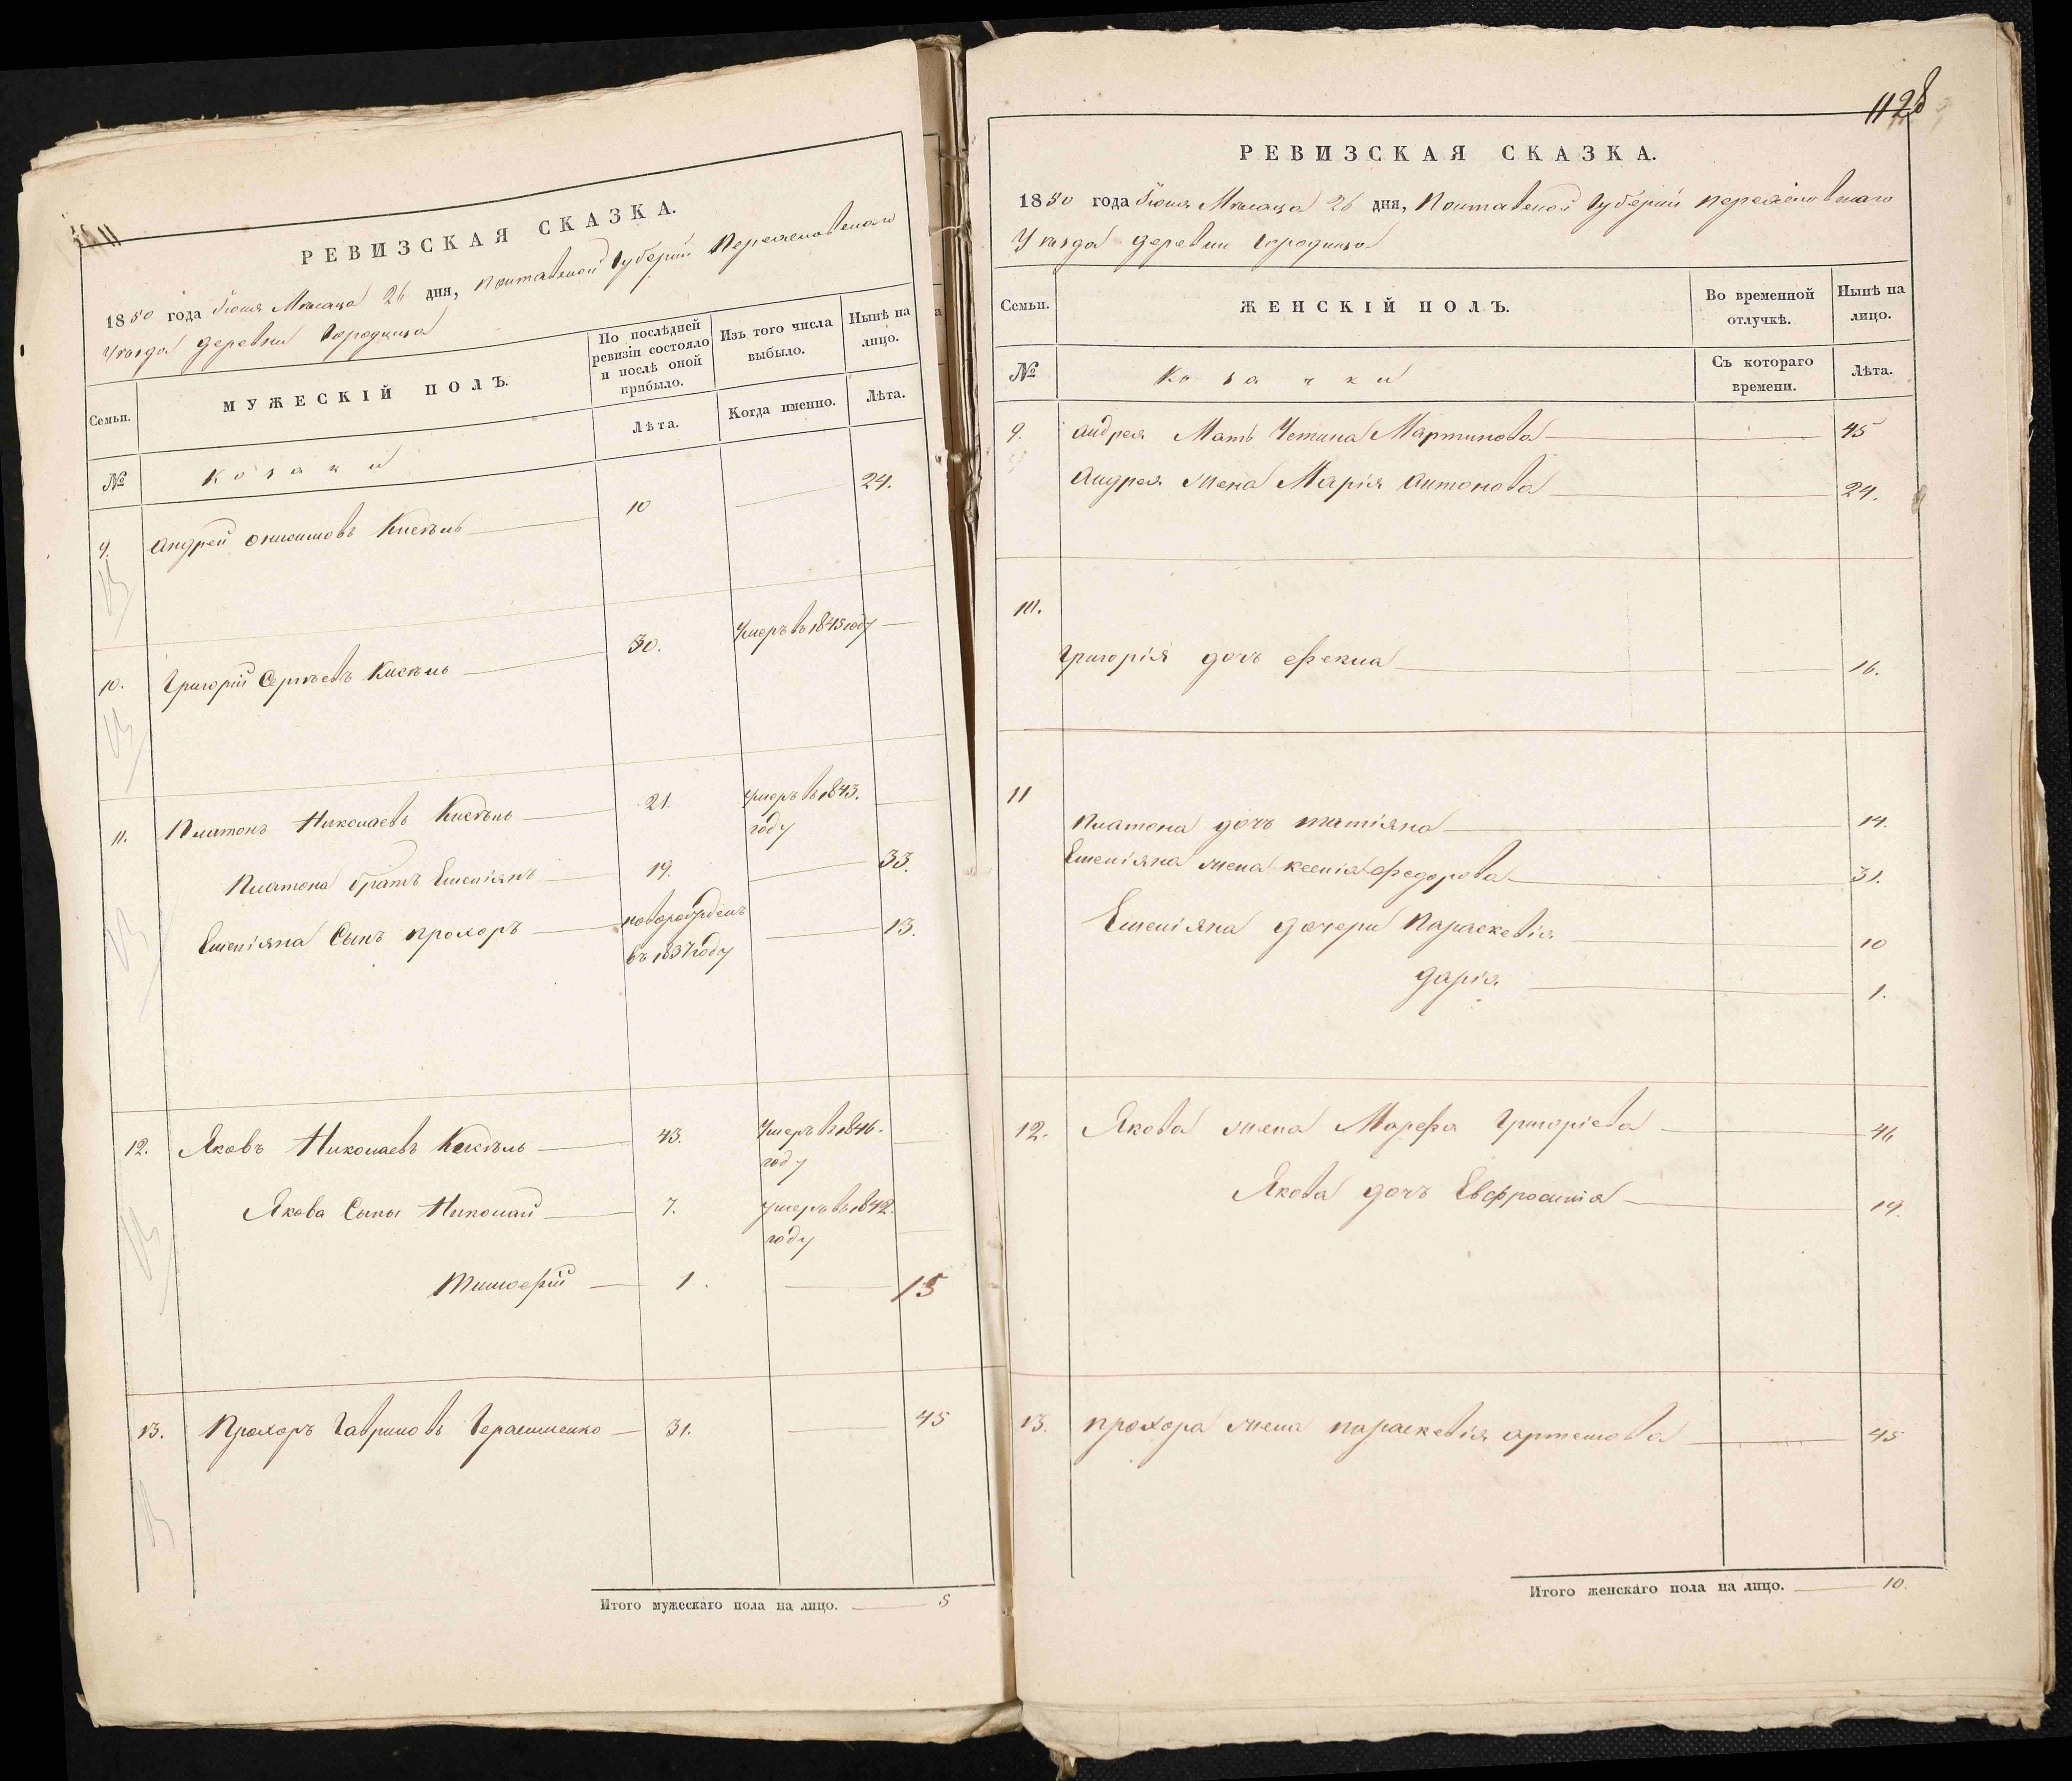 РЕВИЗСКАЯ СКАЗКА.
1850 года Іюня Мѣсяца 26 дня, Полтавской Губерніи Переяславского
Уѣзда деревни Городища
Семьи.
МУЖЕСКІЙ ПОЛЪ.
По послѣдней ревизіи состояло и послѣ оной прибыло.
Изъ того числа выбыло.
Нынѣ на лицо.
№
Козаки
Лѣта.
Когда именно.
Лѣта.
9. Андрей Онисимовъ Кисѣль 10 24.
10. Григорій Сергѣевъ Кисѣль 30. Умеръ въ 1845 году
11. Платонъ Николаевъ Кисѣль 21. Умеръ въ 1843.
году
Платона братъ Емеліянъ 19. 33.
Емеліяна Сынъ Прохоръ новорожденъ 13.
въ 1837 году
12. Яковъ Николаевъ Кисѣль 43. Умеръ въ 1846.
году
Якова Сыны Николай 7. Умеръ въ 1842.
году
Тимофей 1. 15
13. Прохоръ Гавриловъ Герасименко 31. 45
Итого мужескаго пола на лицо. 5
1128
РЕВИЗСКАЯ СКАЗКА.
1850 года Іюня Мѣсяца 26 дня, Полтавской Губерніи Переяславского
Уѣзда деревни Городища
Семьи.
ЖЕНСКІЙ ПОЛЪ.
Во временной отлучкѣ.
Нынѣ на лицо.
№
Козачки
Съ котораго времени.
Лѣта.
9. Андрея Мать Устина Мартинова 45
Андрея жена Марія Антонова 24.
10.
Григорія дочь Фекла 16.
11
Платона дочь Татіяна 14.
Емеліяна жена Ксенія Федорова 31.
Емеліяна дочери Параскевія 10
Дарія 1.
12. Якова жена Марфа Григоріева 46
Якова дочь Евфросинія 19.
13. Прохора жена Параскевія Артемова 45
Итого женскаго пола на лицо. 10.